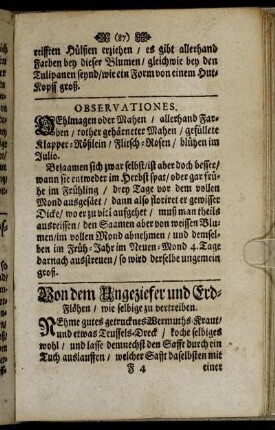 (87)
reifften Hülßen erziehen / es gibt allerhand
Farben bey dieser Blumen / gleich wie bey den
Tulipanen seynd / wie ein Form von einem Hut-
Kopff groß.
OBSERVATIONES.
OEhlmagen oder Mahen / allerhand Far-
ben / rother gehärneter Mahen / gefüllete
Klapper-Rößlein / Flitsch-Rosen / blühen im
Julio.
Besaamen sich zwar selbst / ist aber doch besser /
wann sie entweder im Herbst spat / oder gar frü-
he im Frühling / drey Tage vor dem vollen
Mond ausgesäet / dann also floriret er gewisser
Dicke / wo er zu dick aufgehet / muß man theils
ausreissen / den Saamen aber von weissen Blu-
men / im vollen Mond abnehmen / und demsel-
ben im Früh-Jahr im Neuen-Mond 4. Tage
darnach ausstreuen / so wird derselbe ungemein
groß.
Von dem Ungeziefer und Erd-
Flöhen / wie selbige zu vertreiben.
NEhme gutes getrucknes Wermuths-Kraut /
und etwas Teuffels-Dreck / koche selbiges
wohl / und lasse demnechst den Safft durch ein
Tuch auslauffen / welcher Safft daselbsten mit
F 4 einer